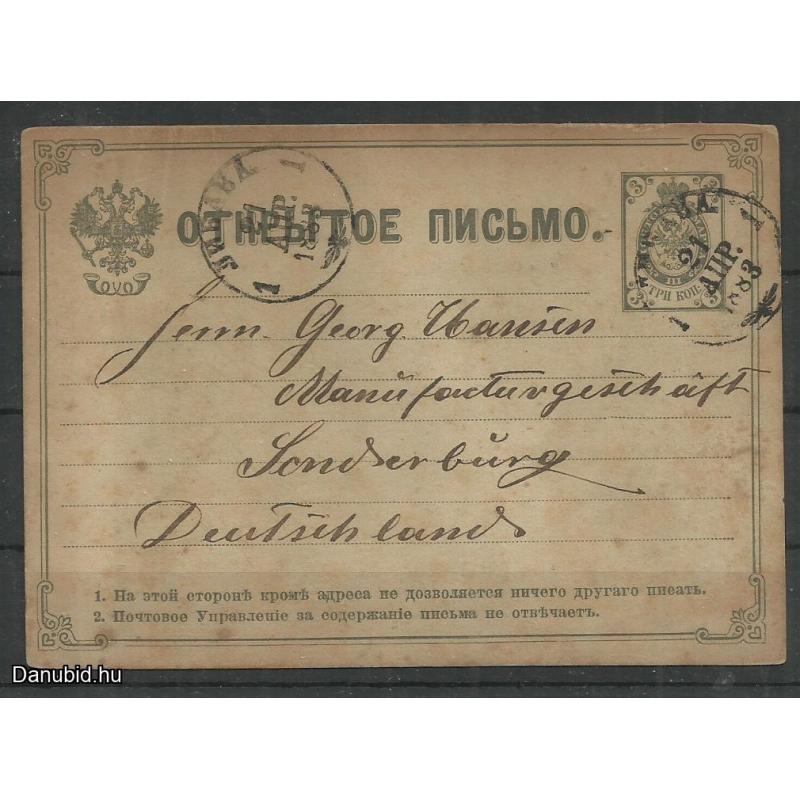 ОТКРЫТОЕ ПИСЬМО.
ЛИБАВА 1
21
АПР.
1883
1
3 3
ТРИ КОП.
3 3
21
АПР.
1883
1 1
Herrn Georg Hansen
Manufacturgeschäft
Sonderburg
Deutschland
1. На этой сторонѣ кромѣ адреса не дозволяется ничего другаго писать.
2. Почтовое Управленіе за содержаніе письма не отвѣчаетъ.
Danubid.hu